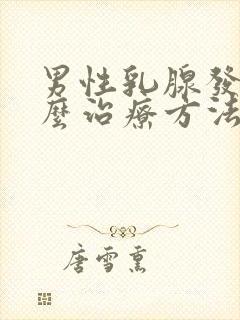 男性乳腺發
麼治療方法
唐雪熏